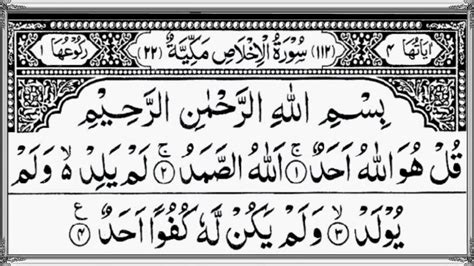 اٰيَاتُهَا ٤ (١١٢) سُوْرَةُ الْاِخْلَاصِ مَكِّيَّةٌ (٢٢) رُكُوْعُهَا ١
بِسْمِ اللهِ الرَّحْمٰنِ الرَّحِيْمِ
قُلْ هُوَ اللهُ اَحَدٌ ۚ﴿١﴾ اَللهُ الصَّمَدُ ۚ﴿٢﴾ لَمْ يَلِدْ ەۙ وَلَمْ
يُوْلَدْ ۙ﴿٣﴾ وَلَمْ يَكُنْ لَّهٗ كُفُوًا اَحَدٌ ﴿٤﴾ ع